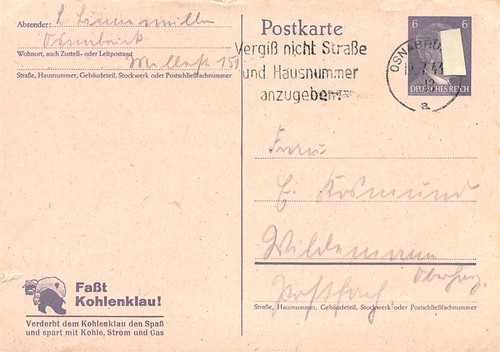 Absender:
Osnabrück
Wohnort, auch Zustell- oder Leitpostamt
151
Straße, Hausnummer, Gebäudeteil, Stockwerk oder Postschließfachnummer
Postkarte
Vergiß nicht Straße
und Hausnummer
anzugeben
6 6
DEUTSCHES REICH
OSNABRÜ
a
Frau
E. Kosmund
Wildemann
Oberharz
Postfach
Straße, Hausnummer, Gebäudeteil, Stockwerk oder Postschließfachnummer
Faßt
Kohlenklau!
Verderbt dem Kohlenklau den Spaß
und spart mit Kohle, Strom und Gas